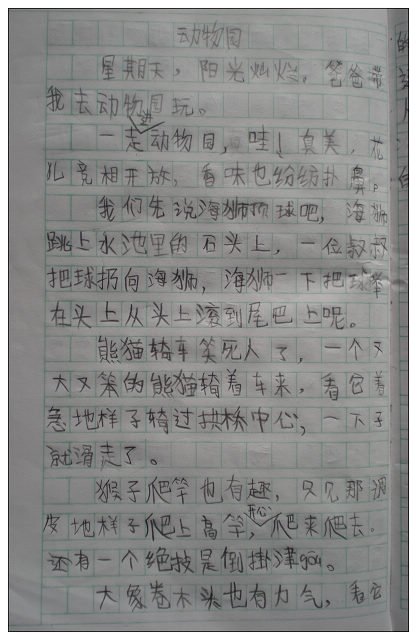 动物园
星期天，阳光灿烂，爸爸带
我去动物园玩。
一走进动物园，哇！真美，花
儿竞相开放，香味也纷纷扑鼻。
我们先说海狮顶球吧，海狮
跳上水池里的石头上，一位叔叔
把球扔向海狮，海狮一下把球举
在头上从头上滚到尾巴上呢。
熊猫骑车笑死人了，一个又
大又笨的熊猫骑着车来，看它着
急地样子骑过拱桥中心，一下子
就滑走了。
猴子爬竿也有趣，只见那调
皮地样子爬上高竿，开心爬来爬去。
还有一个绝技是倒掛津gōu。
大象卷木头也有力气，看它